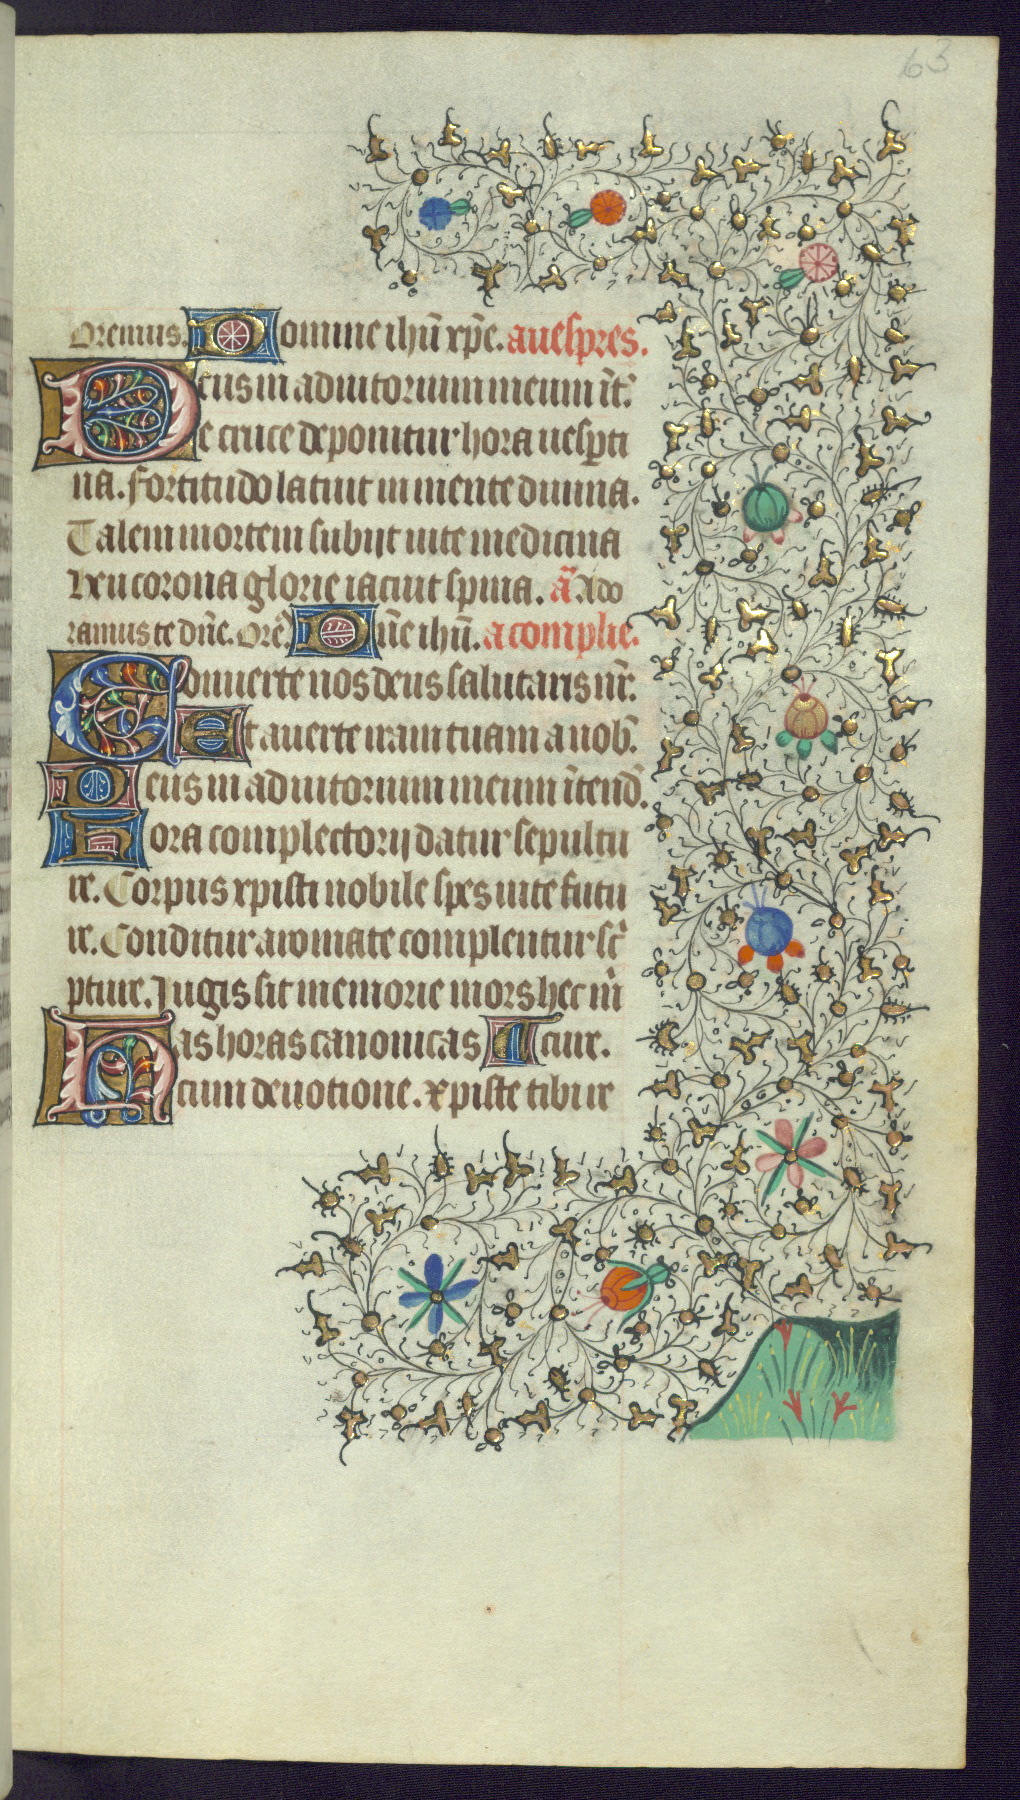 63
Oremus. Domine ihū xp̄e. a uespres.
Deus in adiutorium meum īt̄.
De cruce deponitur hora uesp̄ti
na. Fortitudo latuit in mente diuina.
Talem mortem subijt uite medicina
Heu corona glorie iacuit spina. ā Ado
ramus te dn̄e. Orē Dn̄e ihū. a complie.
Conuerte nos deus salutaris nr̄.
Et auerte iram tuam a nob̄.
Deus in adiutorium meum ītend̄.
Hora complectorij datur sepultu
re. Corpus xpisti nobile spes uite futu
re. Conditur aromate complentur sc̄
pture. Jugis sit memorie mors hec m̄
Has horas canonicas Tcum.
cum deuotione. xpiste tibi re